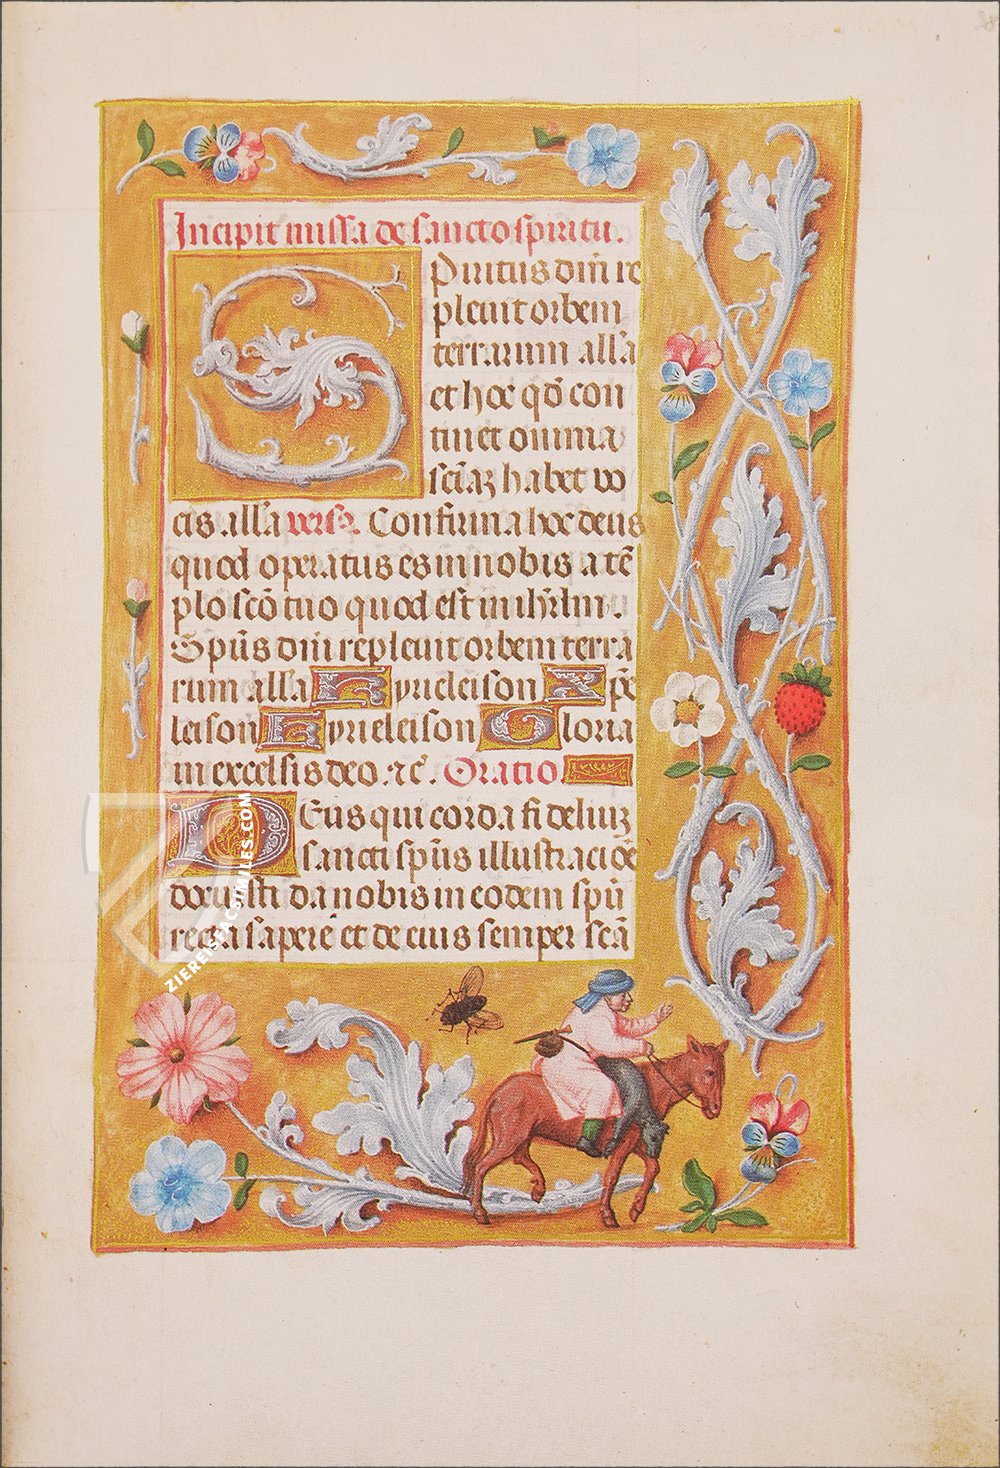 Incipit missa de sancto spiritu.
Spiritus dñi re
pleuit orbem
terrarum alla
et hoc qd̄ con
tinet omnia
sciāꝫ habet vo
cis alla vers9. Confirma hoc deus
quod operatus es in nobis a tē
plo scō tuo quod est in ihrlm.
Spūs dñi repleuit orbem terra
rum alla Kyrieleison Xp̄e
leison Kyrieleison Gloria
in excelsis deo ⁊c̄. Oratio
Deus qui corda fideliuꝫ
sancti spūs illustracōe
docuisti da nobis in eodem spū
recta sapere et de eius semper scā
ZIEREISFACSIMILES.COM